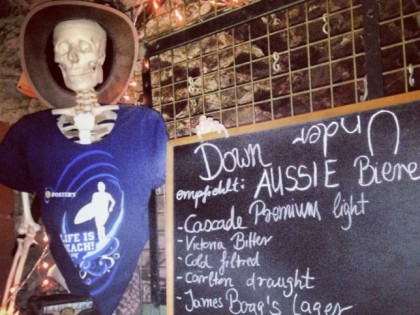 FOSTER'S
LIFE IS
EACH!
Down Under
empfiehlt: AUSSIE Biere
-Cascade Premium light
-Victoria Bitter
-Cold filtred
-Carlton draught
-James Boag's Lager